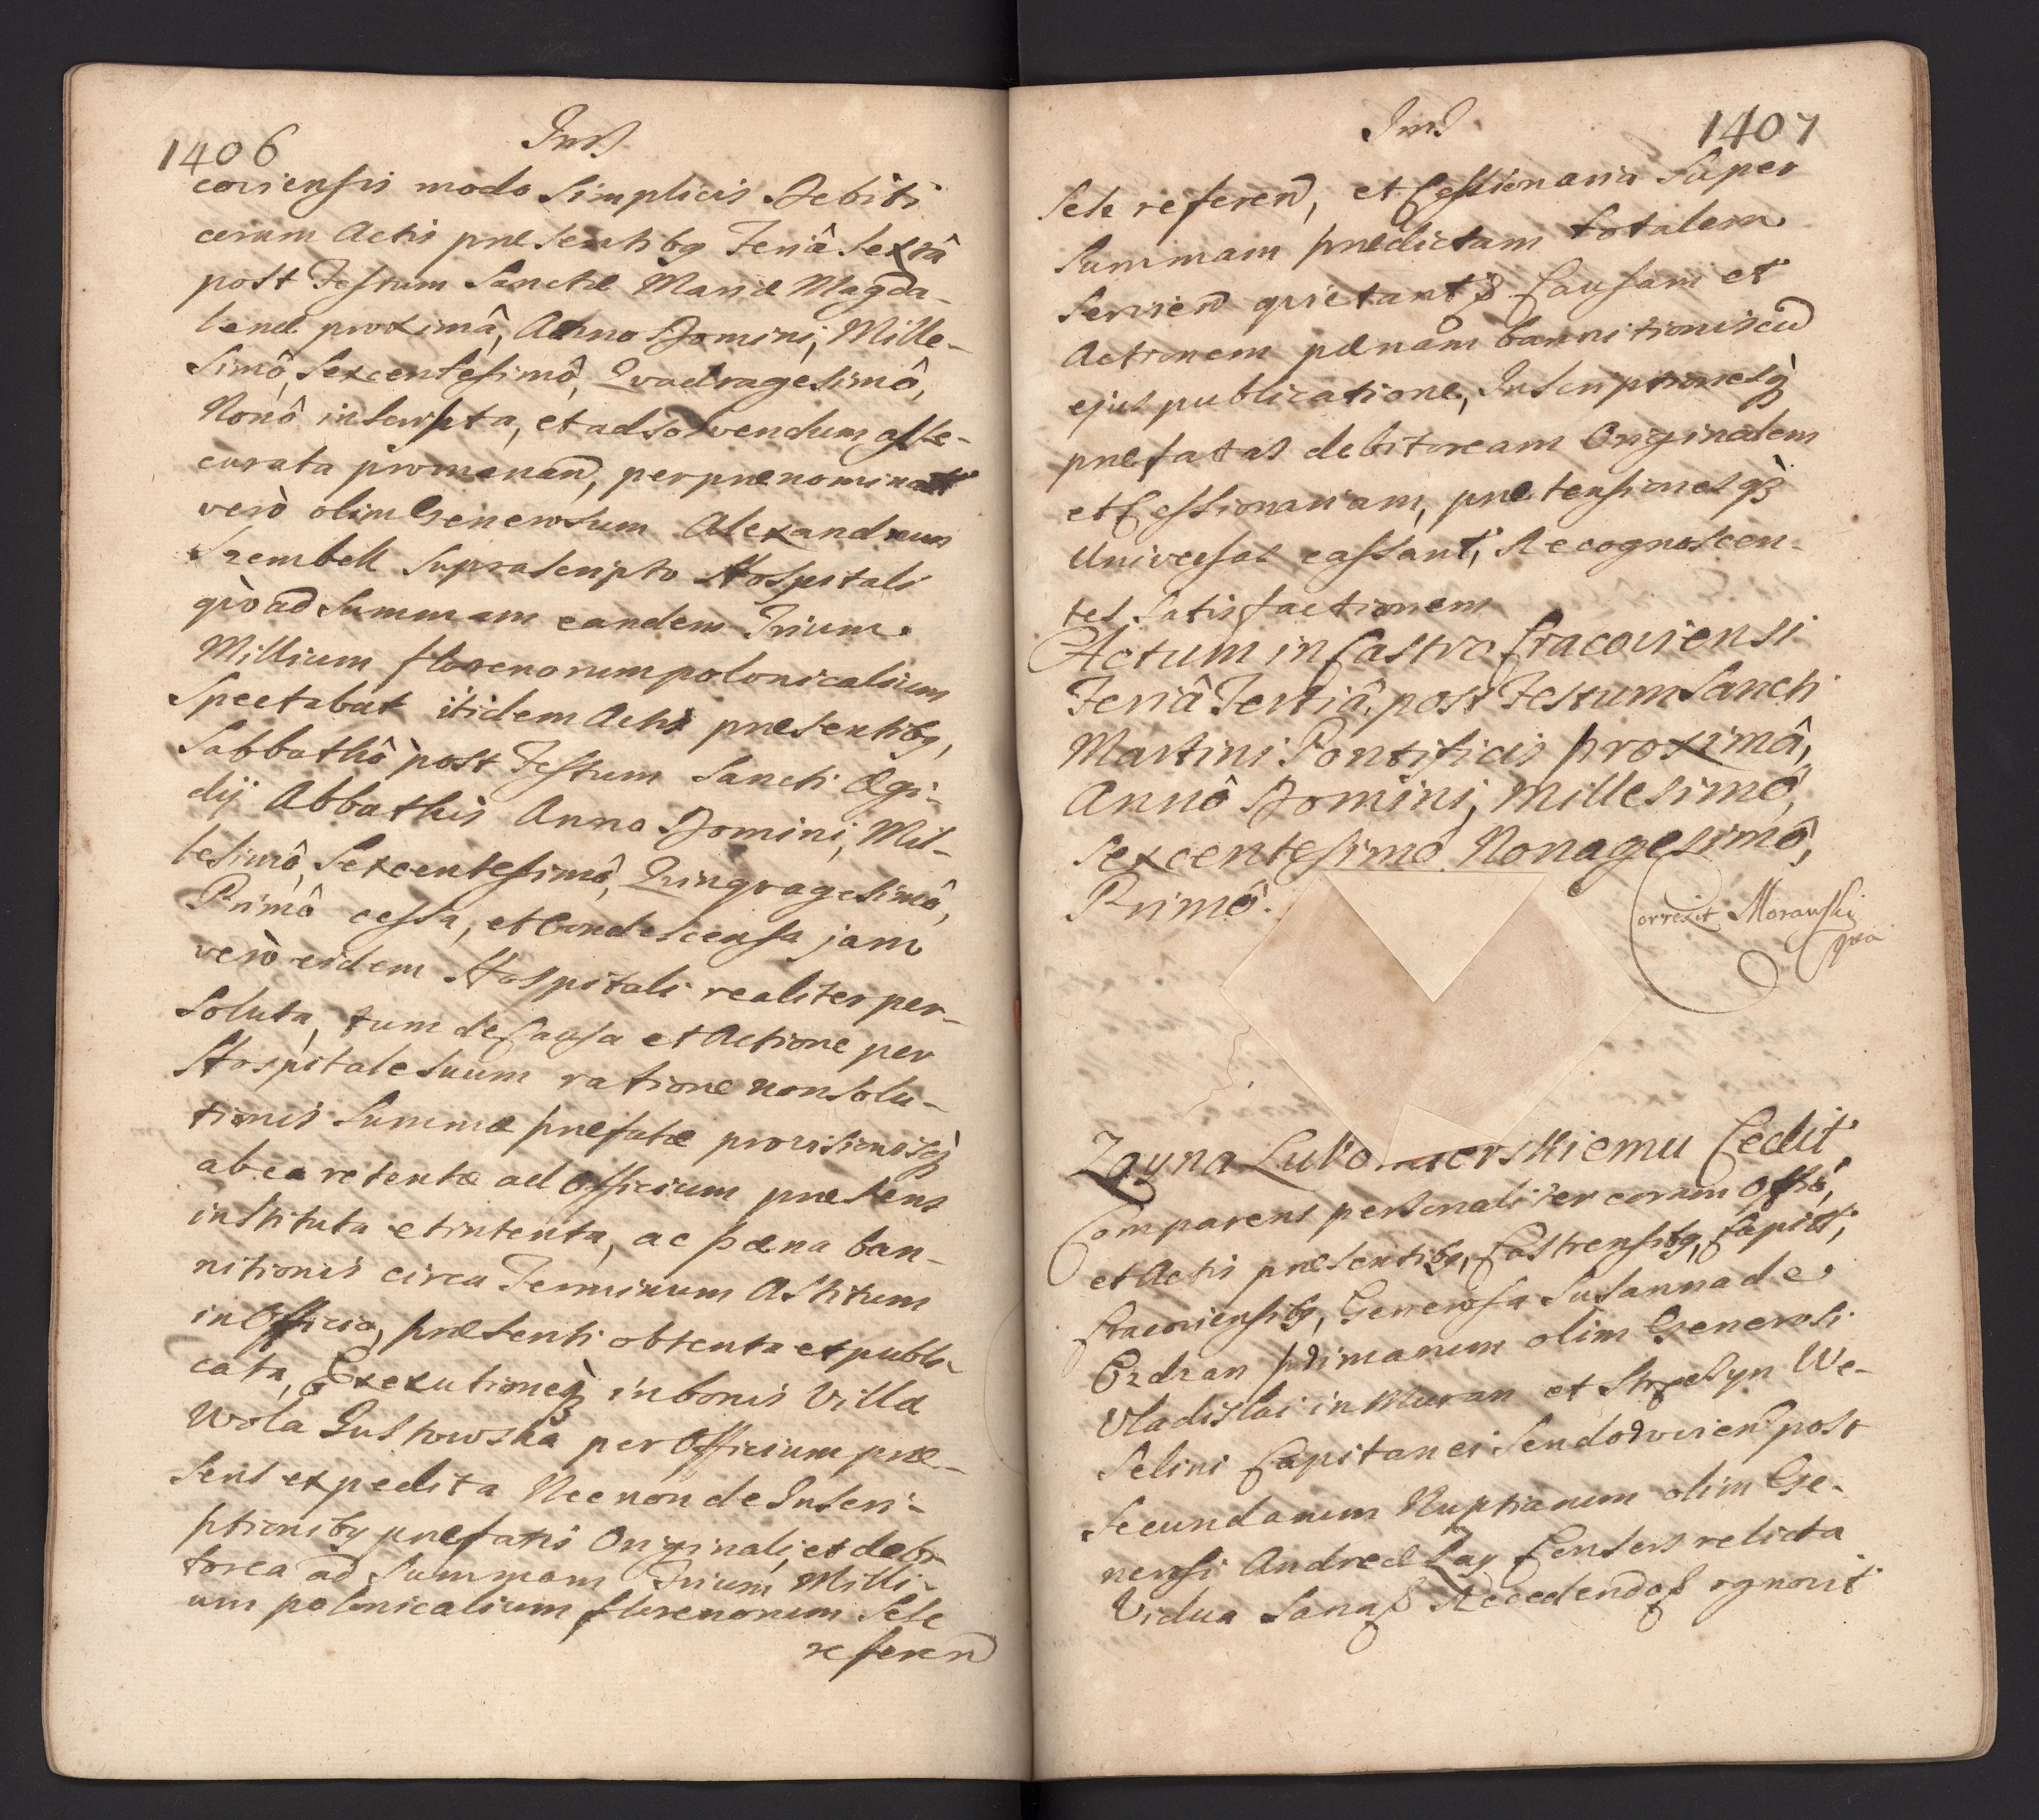 1406
Ins
coviensis modo Simplicis Debiti
coram Actis præsentibq Feriâ Sextâ
post Festum Sanctæ Mariæ Magda-
lenæ proximâ, Anno Domini, Mille-
simô, Sexcentesimô, Qvadragesimô,
Nonô inscripta, et ad solvendum asse-
curata promanen, per prænominat
verò olim Generosum Alexandrum
Szembek suprascripto Hospitali
qvo ad Summam eandem Trium
Millium florenorum polonicalium
Spectabat itidem Actis præsentibq,
Sabbathô post Festum Sancti Ægi-
dij Abbathis Anno Domini, Mil-
lesimô, Sexcentesimô, Qvinqvagesimô,
Primô cessa, et Condescensa jam
verò eidem Hospitali realiter per-
soluta, tum de Causa et Actione per
Hospitale suum ratione non solu-
tionis Summæ præfatæ provisionisq
ab ea retentæ ad Officium præsens
instituta et intenta, ac pæna ban-
nitionis circa Terminum Astitum
in Officio, præsenti obtenta et publi-
cata, Exexutioneq in bonis Villæ
Wola Lustowska per Officium præ-
sens expedita Nec non de Inscri-
ptionibq præfatis Originali, et debi-
torea ad Summam Trium Milli-
um polonicalium florenorum Sese
referen
Ins
1407
Sese referen, et Cessionaria Super
Summam prædictam totalem
Servien qvietant, Causam et
Actionem pænam bannitionis cu
ejus publicatione, Inscriptionesq
præfatas debitoream Originalem
et Cessionariam, prætensionesq
Universas cassant, Recognoscen-
tes Satisfactionem
Actum in Castro Cracoviensi
Feriâ Tertiâ, post Festum Sancti
Martini Pontificis proximâ,
Annô Domini, Millesimô,
Sexcentesimo Nonagesimô,
Primô.
Correxit Morawski
Zayna Lubomierskiemu Cedit,
Comparens personaliter coram Offiô,
et Actis præsentibq, Castrensibq, Capitt,
Cracoviensibq, Generosa Susanna de
Erdzan primarum olim Generosi
Vladislai in Muran et Strzelyn We-
selini Capitanei Sendorwien post
Secundarum Nuptiarum olim Ge-
nerosi Andreæ Zay Consors relicta
Vidua Sana Recedendo ognovit